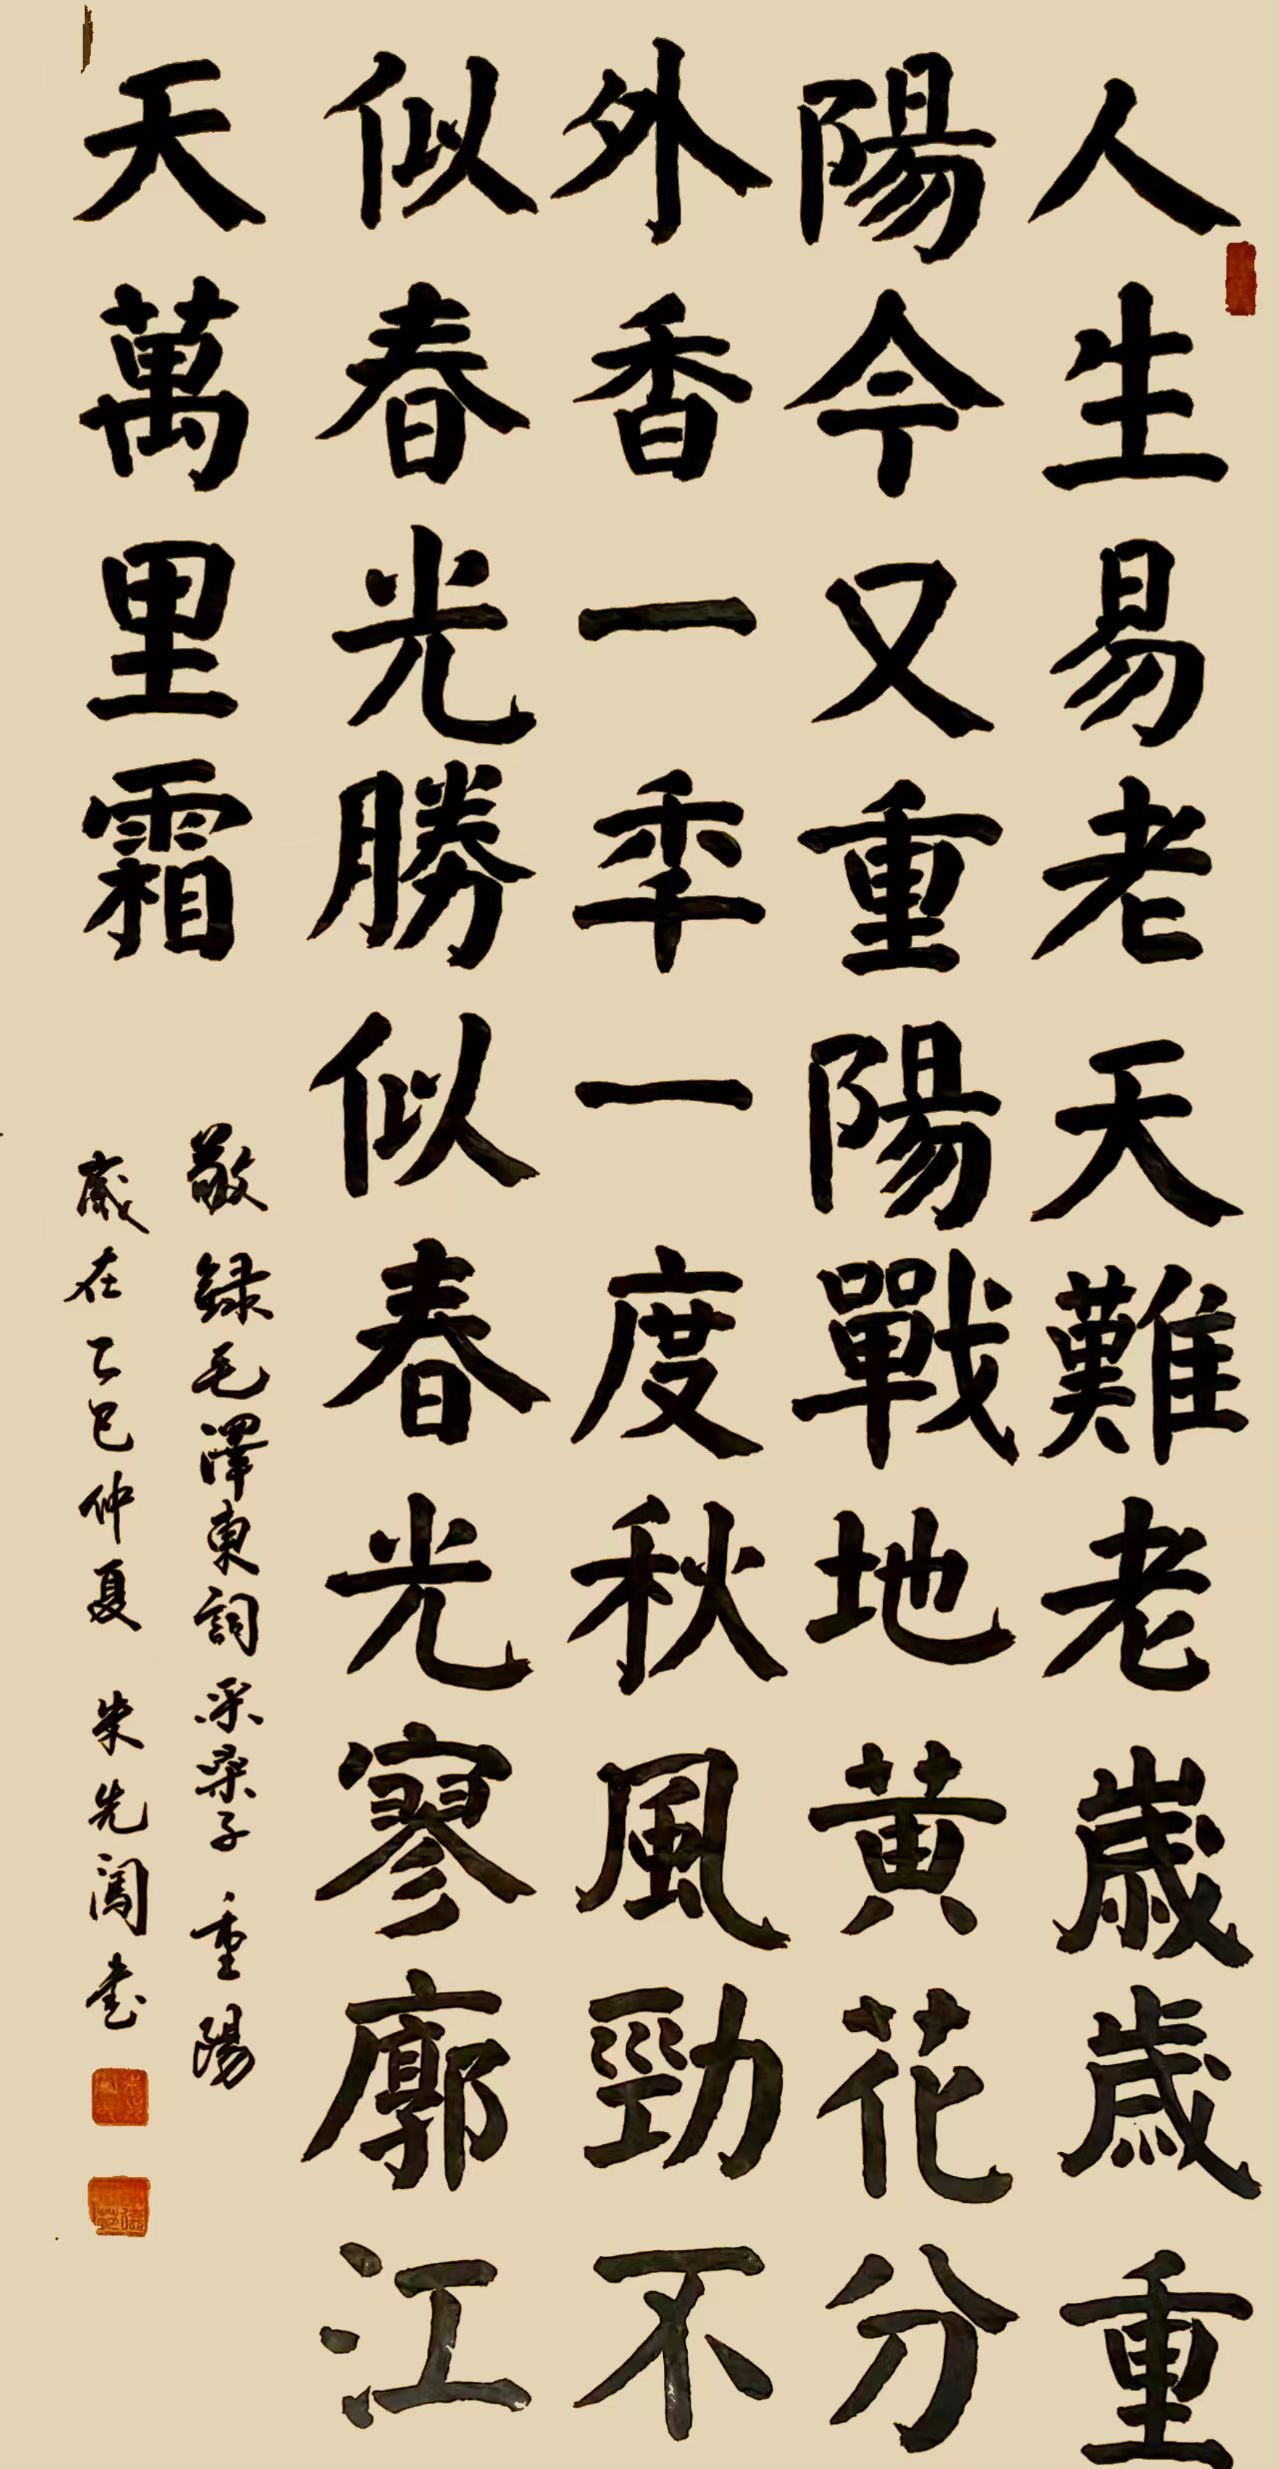 人生易老天難老歲歲重
陽今又重陽戰地黄花分
外香一季一度秋風勁不
似春光勝似春光寥廓江
天萬里霜
敬録毛澤東詞采桑子重陽
歲在乙巳仲夏 朱先闯書